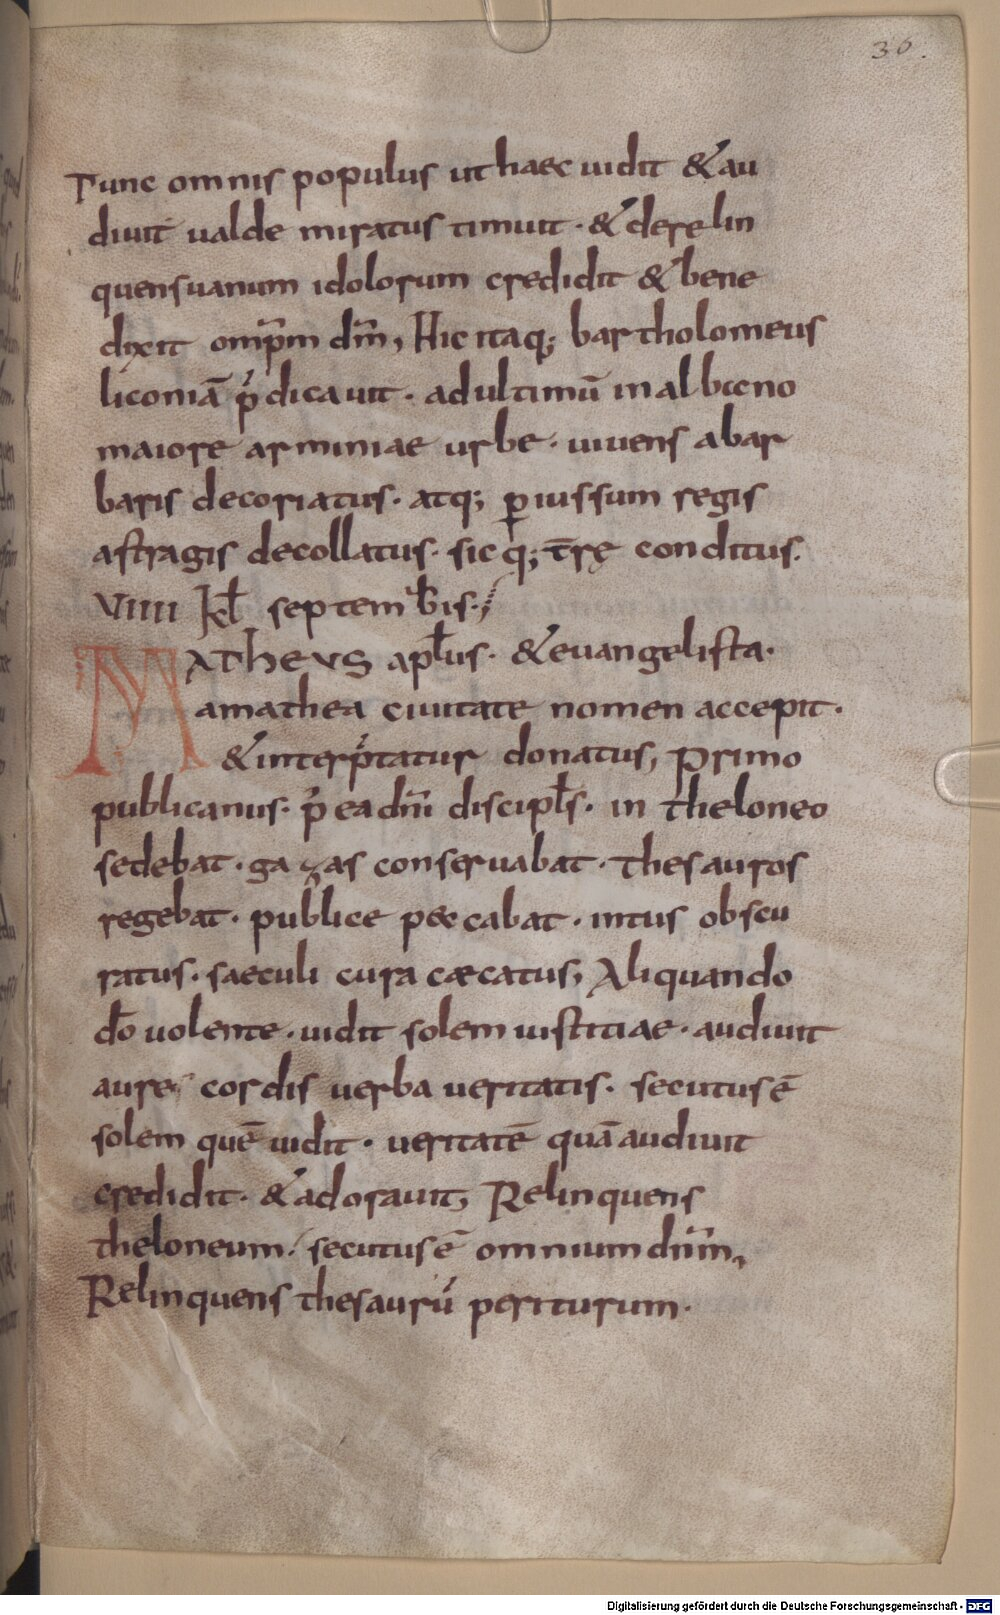 36.
Tunc omnis populus ut haec uidit & au
diuit ualde miratus timuit · & derelin
quens uanum idolorum credidit & bene
dixit omp̄m dm̄, Hic itaq; bartholomeus
liconiā p̄dicauit · ad ultimū in albiceno
maiore arminiae urbe · uiuens abar
baris decoriatus · atq; ꝑ iussum regis
astragis decollatus · sicq; t̄rę conditus.
VIIII kł septembis ·;
MATHEVS apłus · & euangelista ·
amathea ciuitate nomen accepit ·
& interp̄tatur donatus, Primo
publicanus · p̄ea dn̄i discipłs · in theloneo
sedebat · gazas conseruabat · thesauros
regebat · publice peccabat · intus obscu
ratus · saeculi cura cæcatus, Aliquando
do̅ uolente · uidit solem iustitiae · audiuit
aure cordis uerba ueritatis · secutus ē
solem quē uidit · ueritatē quā audiuit
credidit · & adorauit, Relinquens
theloneum / secutus ē omnium dn̄m,
Relinquens thesaurū periturum ·
Digitalisierung gefördert durch die Deutsche Forschungsgemeinschaft - DFG